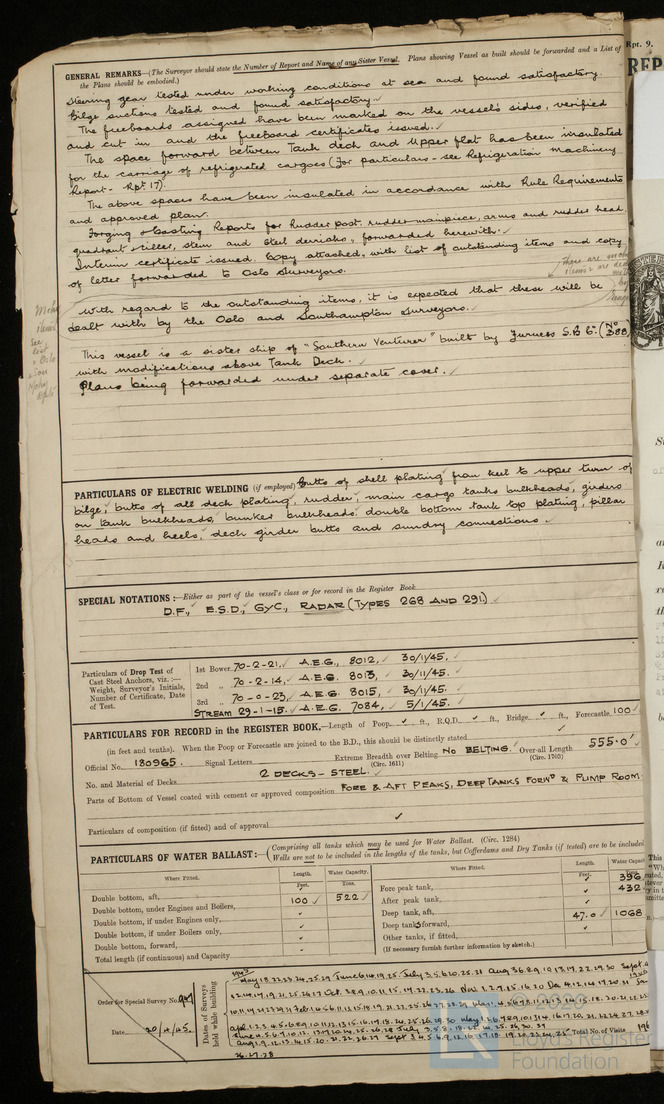 Rpt. 9.
GENERAL REMARKS—(The Surveyor should state the Number of Report and Name of any Sister Vessel. Plans showing Vessel as built should be forwarded and a List of
the Plans should be embodied.)
Steering gear tested under working conditions at sea and found satisfactory.
Bilge suctions tested and found satisfactory.
The freeboards assigned have been marked on the vessel's sides, verified
and cut in and the freeboard certificates issued.
The space forward between Tank deck and Upper flat has been insulated
for the carriage of refrigerated cargoes (For particulars - see Refrigeration Machinery
Report - Rpt. 17).
The above spaces have been insulated in accordance with Rule Requirements
and approved plan.
Forging & Casting Reports for Rudder post, rudder mainpiece, arms and rudder head,
quadrant & tiller, stem and steel derricks, forwarded herewith.
Interim certificate issued. Copy attached, with list of outstanding items and copy
of letter forwarded to Oslo Surveyors.
With regard to the outstanding items, it is expected that these will be
dealt with by the Oslo and Southampton Surveyors.
This vessel is a sister ship of "Southern Venturer" built by Furness S.B. Co. (No 388)
with modifications above Tank Deck.
Plans being forwarded under separate cover.
PARTICULARS OF ELECTRIC WELDING (if employed) Butts of shell plating from keel to upper turn of
bilge, butts of all deck plating, rudder, main cargo tanks bulkheads, girders
on tank bulkheads, bunker bulkheads, double bottom tank top plating, pillar
heads and heels, deck girder butts and sundry connections.
SPECIAL NOTATIONS:—Either as part of the vessel's class or for record in the Register Book
D.F., E.S.D., GyC., RADAR (TYPES 268 AND 291)
Particulars of Drop Test of
Cast Steel Anchors, viz.:—
Weight, Surveyor's Initials,
Number of Certificate, Date
of Test.
1st Bower 70-2-21, A.E.G., 8012, 30/11/45.
2nd „ 70-2-14, A.E.G. 8013, 30/11/45.
3rd „ 70-0-23, A.E.G. 8015, 30/11/45.
STREAM 29-1-15. A.E.G. 7084, 5/1/45.
PARTICULARS FOR RECORD in the REGISTER BOOK.—Length of Poop ft., R.Q.D. ft., Bridge ft., Forecastle 100
(in feet and tenths). When the Poop or Forecastle are joined to the B.D., this should be distinctly stated
Official No. 180965. Signal Letters Extreme Breadth over Belting NO BELTING. Over-all Length 555.0'
(Circ. 1611) (Circ. 1703)
No. and Material of Decks 2 DECKS - STEEL.
Parts of Bottom of Vessel coated with cement or approved composition FORE & AFT PEAKS, DEEP TANKS FORWD & PUMP ROOM.
Particulars of composition (if fitted) and of approval
PARTICULARS OF WATER BALLAST:—(Comprising all tanks which may be used for Water Ballast. (Circ. 1284)
Wells are not to be included in the lengths of the tanks, but Cofferdams and Dry Tanks (if tested) are to be included
Where Fitted. Length. Water Capacity. Where Fitted. Length. Water Capac
Feet. Tons. Feet.
Double bottom, aft, 100 522 Fore peak tank, 396
Double bottom, under Engines and Boilers, After peak tank, 432
Double bottom, if under Engines only, Deep tank, aft, 47.0 1068
Double bottom, if under Boilers only, Deep tanks forward,
Double bottom, forward, Other tanks, if fitted,
Total length (if continuous) and Capacity (If necessary furnish further information by sketch.)
Order for Special Survey No.
Date
Dates of Surveys
held while building
Total No. of Visits
26.27.28
Lloyd's Register
Foundation